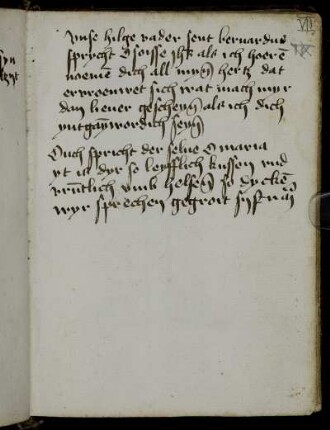 vnse hilge vader sent bernardus
sprycht O soisse ihs als ich hoerē
noemē dich all myn hertz dat
ervroeuwet sich wat mach myr
dan lieuer gescheyn als ich dich
yntgaynwordich seyn
Ouch spricht der selue O maria
yt is dyr so leyfflich kussen vnd
vrūtlich vmb helsen so dyckē
wyr sprechen gegroit syst mā
VII